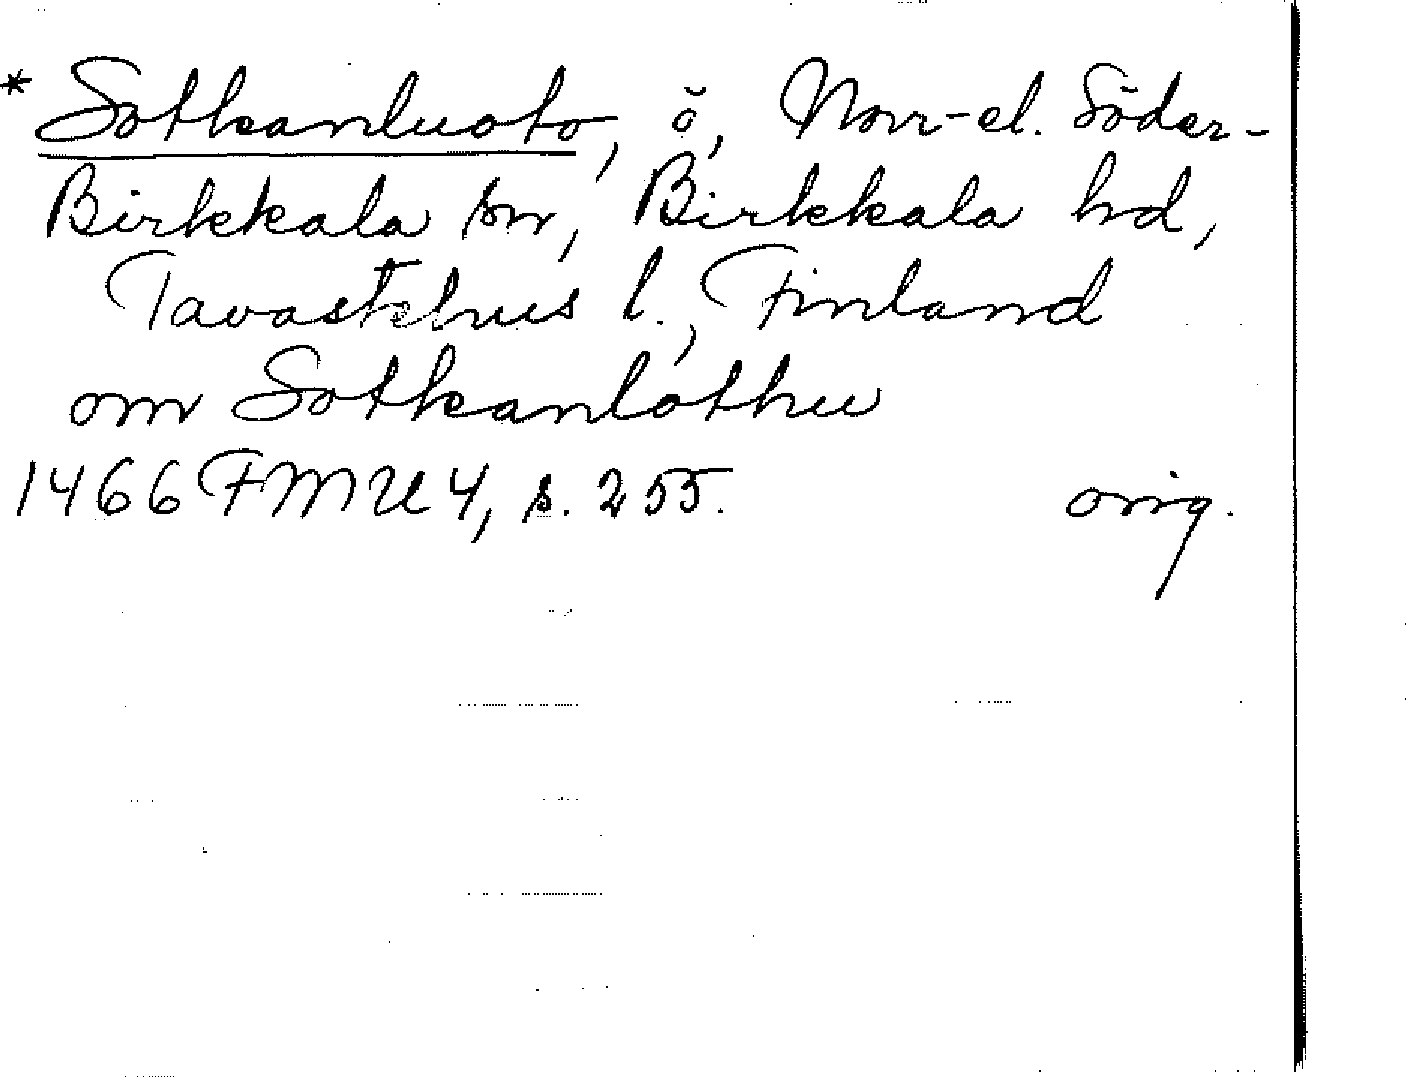 * Sotkanluoto, ö, Norr- el. Söder-
Birkkala sn, Birkkala hd,
Tavastehus l., Finland
om Sotkanlothu
1466 FMU 4, s. 255. orig.